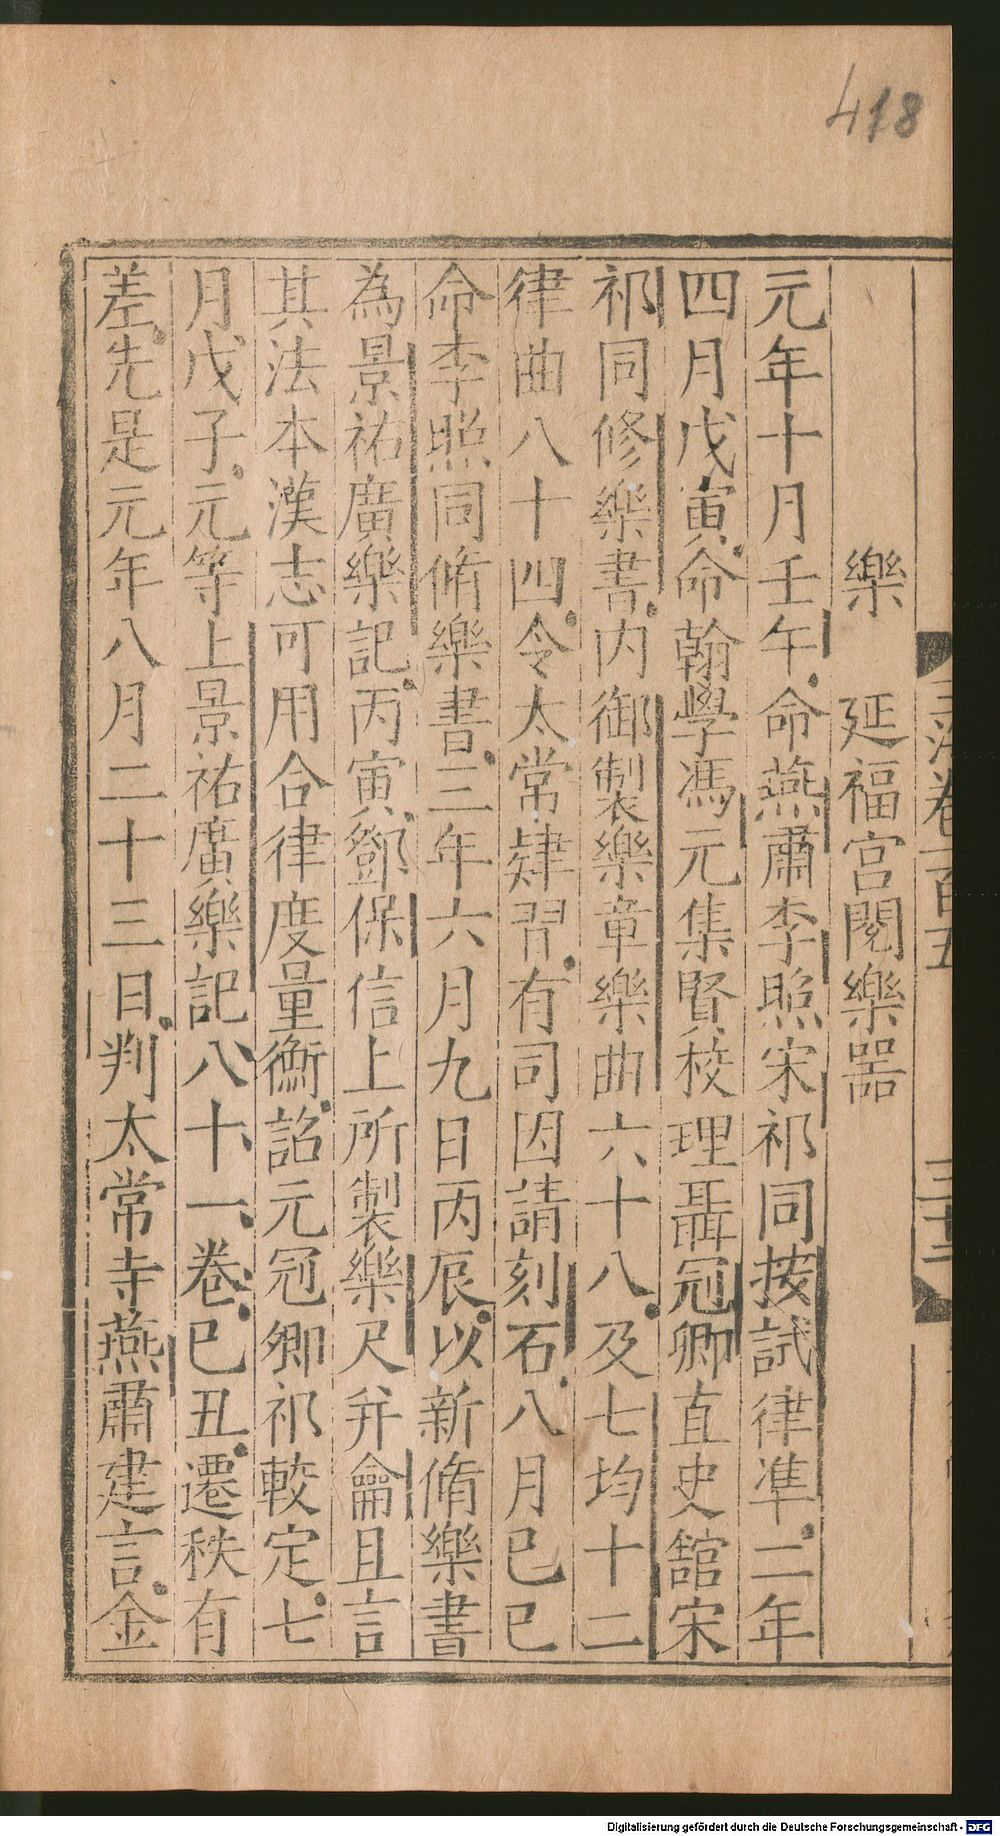 418
樂　延福宮閱樂器
元年十月壬午命燕肅李照宋祁同按試律準二年
四月戊寅命翰學馮元集賢校理聶冠卿直史館宋
祁同修樂書内御製樂章樂曲六十八及七均十二
律曲八十四令太常肄習有司因請刻石八月已已
命李照同脩樂書三年六月九日丙辰以新脩樂書
為景祐廣樂記丙寅鄧保信上所製樂尺并龠且言
其法本漢志可用合律度量衡詔元冠卿祁較定七
月戊子元等上景祐廣樂記八十一卷已丑遷秩有
差先是元年八月二十三日判太常寺燕肅建言金
Digitalisierung gefördert durch die Deutsche Forschungsgemeinschaft - DFG